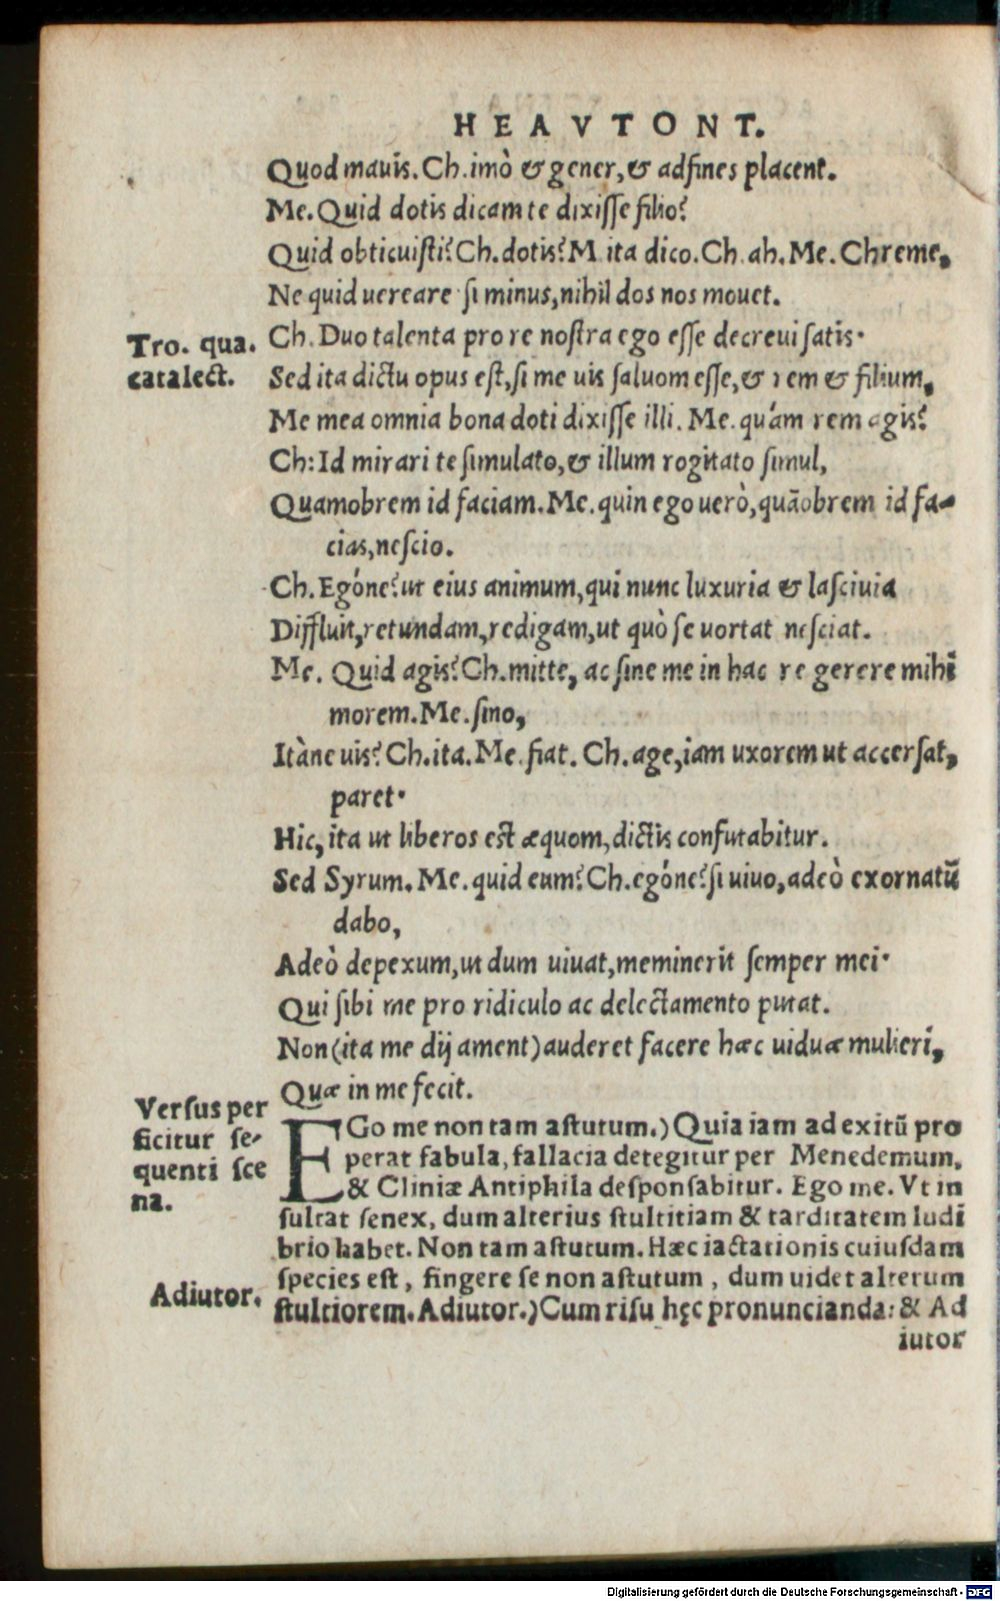 HEAVTONT.
Quod mauis. Ch. imò & gener, & adfines placent.
Me. Quid dotis dicam te dixiſſe filio?
Quid obticuiſti? Ch. dotis? M ita dico. Ch. ah. Me. Chreme,
Ne quid uereare ſi minus, nihil dos nos mouet.
Tro. qua. catalect.
Ch. Duo talenta pro re noſtra ego eſſe decreui ſatis.
Sed ita dictu opus eſt, ſi me uis ſaluom eſſe, & rem & filium,
Me mea omnia bona doti dixiſſe illi. Me. quám rem agis?
Ch: Id mirari te ſimulato, & illum rogitato ſimul,
Quamobrem id faciam. Me. quin ego uerò, quãobrem id fa-
cias, neſcio.
Ch. Egóne? ut eius animum, qui nunc luxuria & laſciuia
Diffluit, retundam, redigam, ut quò ſe uortat neſciat.
Me. Quid agis? Ch. mitte, ac ſine me in hac re gerere mihi
morem. Me. ſino,
Itàne uis? Ch. ita. Me. fiat. Ch. age, iam uxorem ut accerſat,
paret.
Hic, ita ut liberos eſt æquom, dictis confutabitur.
Sed Syrum. Me. quid eum? Ch. egóne? ſi uiuo, adeò exornatũ
dabo,
Adeò depexum, ut dum uiuat, meminerit ſemper mei.
Qui ſibi me pro ridiculo ac delectamento putat.
Non (ita me dij ament) auderet facere hæc uiduæ mulieri,
Quæ in me fecit.
Verſus per
ficitur ſe-
quenti ſce
na.
EGo me non tam aſtutum.) Quia iam ad exitũ pro
perat fabula, fallacia detegitur per Menedemum,
& Cliniæ Antiphila deſponſabitur. Ego me. Vt in
ſultat ſenex, dum alterius ſtultitiam & tarditatem ludi
brio habet. Non tam aſtutum. Hæc iactationis cuiuſdam
ſpecies eſt, fingere ſe non aſtutum, dum uidet alterum
Adiutor.
ſtultiorem. Adiutor.) Cum riſu hęc pronuncianda: & Ad
iutor
Digitalisierung gefördert durch die Deutsche Forschungsgemeinschaft - DFG